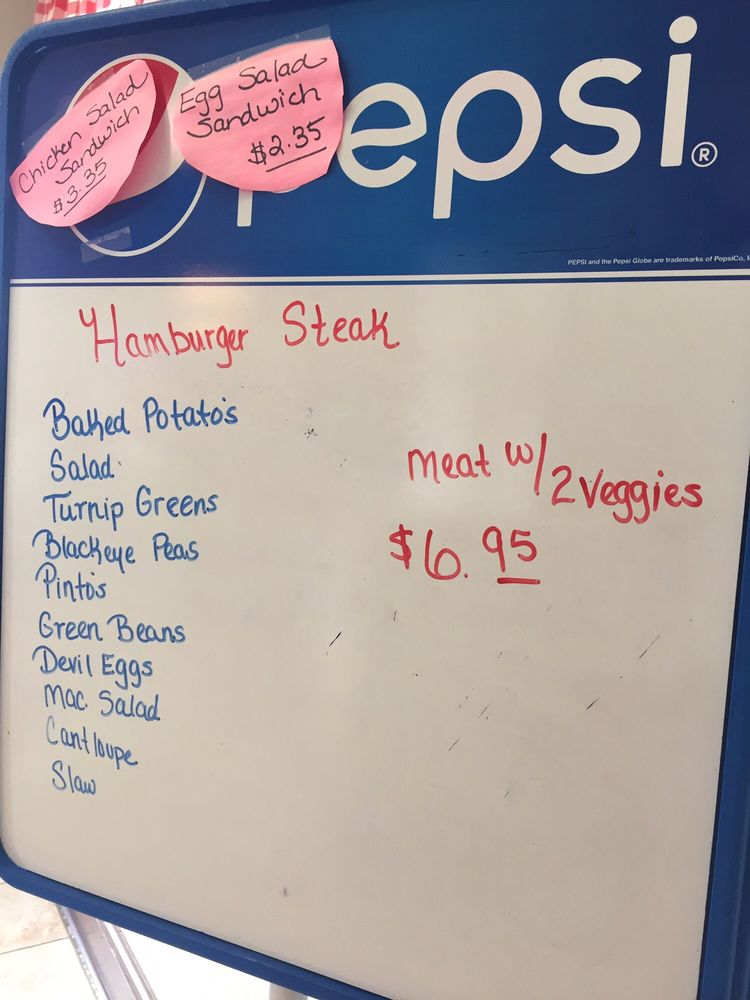 Chicken Salad
Sandwich
$3.35
Egg Salad
Sandwich
$2.35
pepsi®
PEPSI and the Pepsi Globe are trademarks of PepsiCo,
Hamburger Steak
Baked Potato's
Salad
Turnip Greens
Blackeye Peas
Pinto's
Green Beans
Devil Eggs
Mac. Salad
Cantloupe
Slaw
Meat w/ 2 Veggies
$6.95